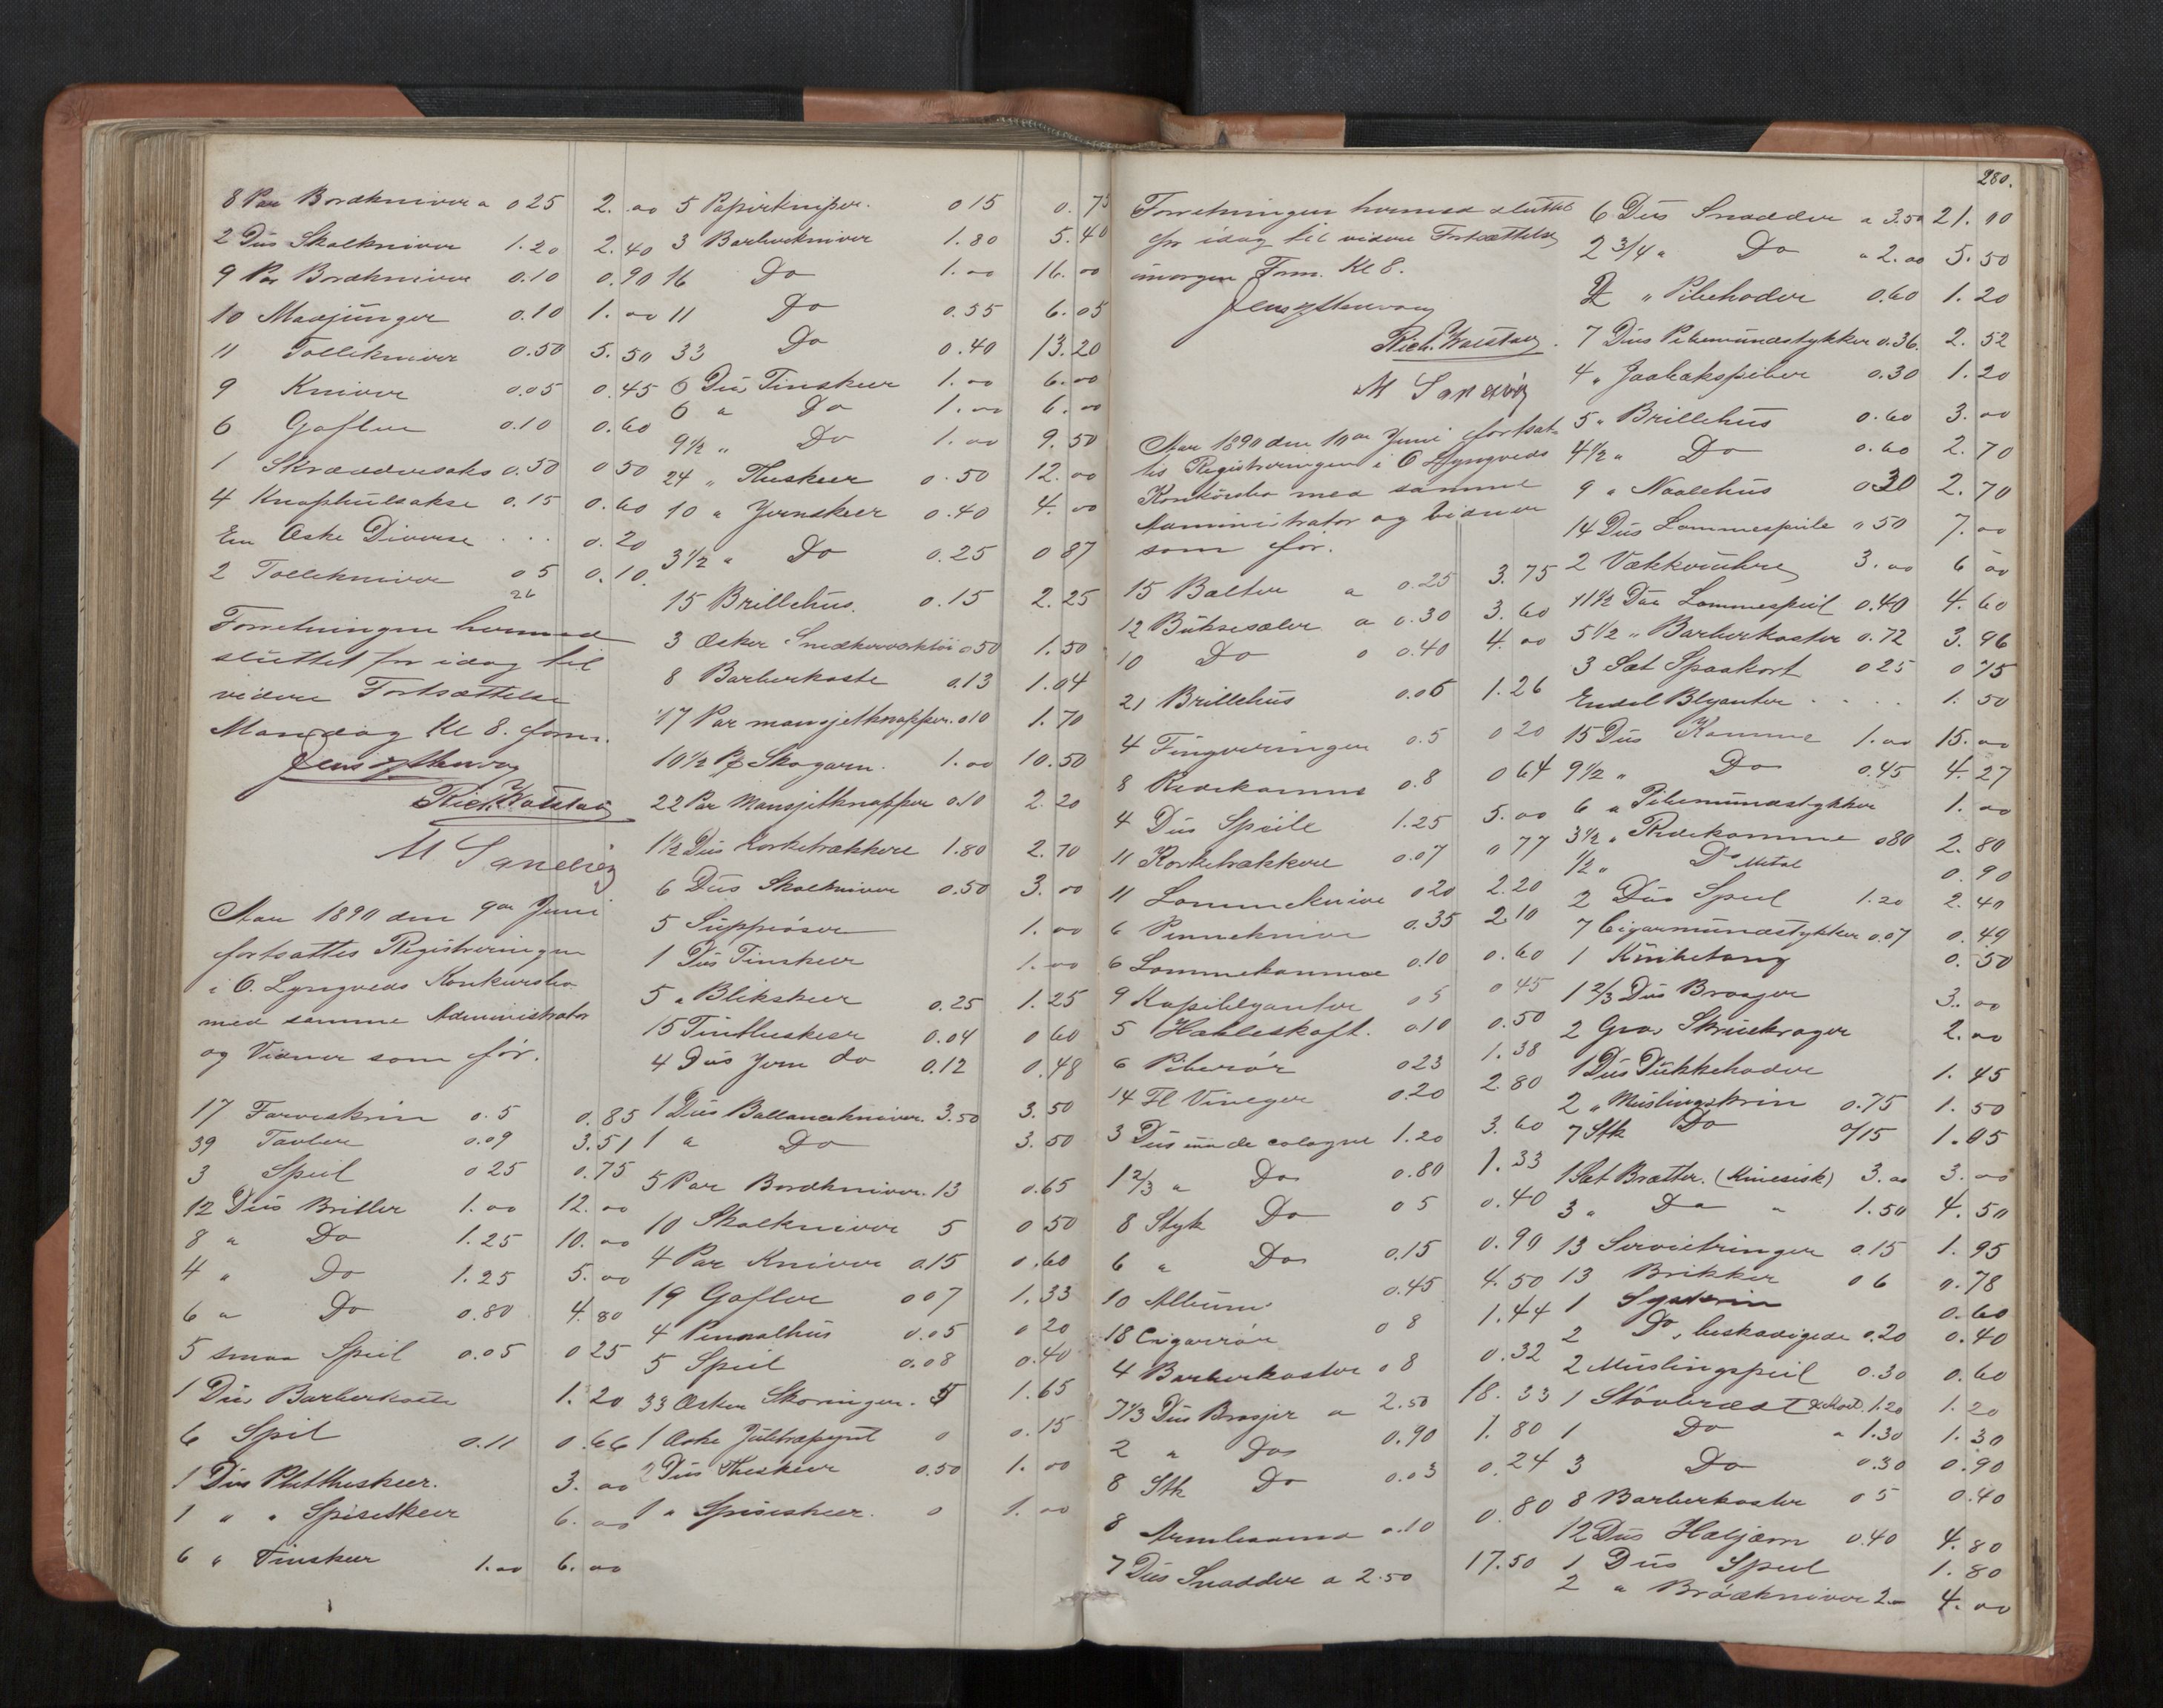 8 Par Bordkniver a 0 25 2.00
2 Dus Skalkniver 1.20 2.40
9 Par Bordkniver 0.10 0.90
10 0.10 1.00
11 Tolleknive 0.50 5.50
9 Knive 0.05 0.45
6 Gafler 0.10 0.60
1 Skræddersaks 0.50 0 50
4 Knaphulsakse 0.15 0.60
En Æske Diverse . . . 0.20
2 Tolleknive 0 5 0.10.
26
Forretningen hermed
sluttet for idag til
videre Fortsættelse
Mandag Kl 8. form.
Rich. Kolstad
M Sandvig
Aar 1890 den 9de Juni
fortsattes Registreringen
i O. Lyngveds Konkursbo
med samme Administrator
og Vidner som før.
17 Farveskrin 0.5 0.85
39 Tavler 0.09 3.51
3 Speil 0 25 0.75
12 Dus Briller 1.00 12.00
8 " Do 1.25 10.00
4 " Do 1.25 5.00
6 " Do 0.80 4.80
5 smaa Speil 0.05 0 25
1 Dus Barberkoste 1.20
6 Spil 0.11 0.66
1 Dus Pletttheskeer. 3.00
1 " " Spiseskeer 6.00
6 " Tinskeer 1.00 6.00
5 Papirkniper. 0 15 0.75
3 Barberkniver 1.80 5.40
16 Do 1.00 16.00
11 Do 0.55 6.05
33 Do 0.40 13.20
6 Dus Tinskeer 1.00 6.00
6 " Do 1.00 6.00
9½ " Do 1.00 9.50
24 " Theskeer 0.50 12.00
10 " Jernskeer 0.40 4.00
3½ " Do 0.25 0 87
15 Brillehus. 0.15 2.25
3 Æsker Snedkerværktøi 0 50 1.50
8 Barberkoste 0.13 1.04
17 Par mansjetknapper. 0 10 1.70
10½ ℔ Skogarn. 1.00 10.50
22 Par Mansjetknapper 0.10 2.20
1½ Dus Korketrækkere 1.80 2.70
6 Dus Skalkniver 0.50 3.00
5 Suppeøser 1.00
1 Dus Tinskeer 1.00
5 " Blikskeer 0.25 1.25
15 Tintheskeer 0.04 0 60
4 Dus Jern do 0.12 0.48
1 Dus Ballanceknive. 3.50 3.50
1 " Do 3.50
5 Par Bordkniver. 13 0.65
10 Skalkniver 5 0 50
4 Par Kniver 0.15 0.60
19 Gafler 0 07 1.33
4 Pennalhus 0.05 0 20
5 Speil 0.08 0.40
33 Æsker Skoringer. 5 1.65
1 Æske Juletræpynt 0 0.15
2 Dus Theskeer 0.50 1.00
1 " Spiseskeer. 0 1.00
280.
Forretningen hermed sluttet
for idag til videre Fortsættelse
imorgen Form. Kl 8.
Rich. Kolstad.
M Sandvig
Aar 1890 den 10de Juni fortsat-
tes Registreringen i O Lyngveds
Konkursbo med samme
Administrator og Vidner
som før.
15 Belter a 0.25 3.75
12 Buksesæler a 0.30 3.60
10 Do 0 0.40 4.00
21 Brillehus 0.06 1.26
4 Fingerringer 0.5 0 20
8 Redekamme 0.8 0 64
4 Dus Speile 1.25 5.00
11 Korketrækkere 0.07 0 77
11 Lommeknive 0 20 2.20
6 Penneknive 0.35 2.10
6 Lommekamme 0.10 0.60
9 Kopiblyanter 0 5 0 45
5 Hakleskaft. 0.10 0.50
6 Piberør 0 23 1.38
14 Fl Vineger 0.20 2.80
3 Dus eau de cologne 1.20 3.60
1 2/3 " Do 0.80 1.33
8 Styk Do 0 5 0.40
6 " Do 0.15 0.90
10 Albums 0.45 4.50
18 Cigarrør 0 8 1.44
4 Barberkoster 0 8 0.32
7 1/3 Dus Brosjer a 2.50 18.33
2 " Do 0.90 1.80
8 Stk Do 0.03 0.24
8 Armbaand 0.10 0.80
7 Dus Snadder a 2.50 17.50
6 Dus Snadder a 3.50 21.00
2 3/4 " Do " 2.00 5.50
2 " Pibehoder 0.60 1.20
7 Dus Pibemundstykker 0.36. 2.52
4 " 0.30 1.20
5 " Brillehus 0.60 3.00
4½ " Do 0.60 2.70
9 " Naalehus 0 30 2.70
14 Dus Lommespeile 0 50 7.00
2 Vækkeruhre 3.00 6 00
11½ Dus Lommespeil 0.40 4.60
5½ " Barberkoster 0.72 3.96
3 Sæt Spaakort 0 25 0 75
Endel Blyanter . . . . 1.50
15 Dus Kamme 1.00 15.00
9½ " Do 0.45 4.27
6 " Pibemundstykker 1.00
3½ " Redekamme 0 80 2.80
½ " Do Metal 0.90
2 Dus Speil 1.20 2.40
7 Cigarmundstykker 0.07 0.49
1 Knibetang 0.50
1 2/3 Dus Brosjer 3.00
2 Gros Skruekroger 2.00
1 Dus Dukkehoder 1.45
2 " Muslingskrin 0.75 1.50
7 Stk Do 0/15 1.05
1 Sæt Bretter. (Kinesisk) 3.00 3.00
3 " Do " 1.50 4.50
13 Servietringer 0.15 1.95
13 Brikker 0 6 0.78
1 Syskrin 0.60
2 Do, beskadigede 0.20 0.40
2 Muslingspeil 0.30 0.60
1 Støvbræt 1.20 1.20
1 Do " 1.30 1.30
3 Do 0.30 0.90
8 Barberkoster 0 5 0.40
12 Dus Heljern 0.40 4.80
1 Dus Speil 1.80
2 " Brødkniver 2.00 4.00